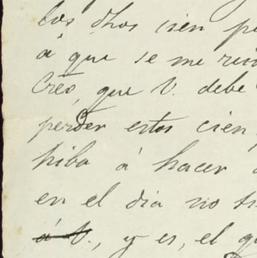 los dhos cien pe
á que se me rin
Creo, que V. debe
perder estos cien
hiba á hacer
en el dia no t
á V., y es, el q